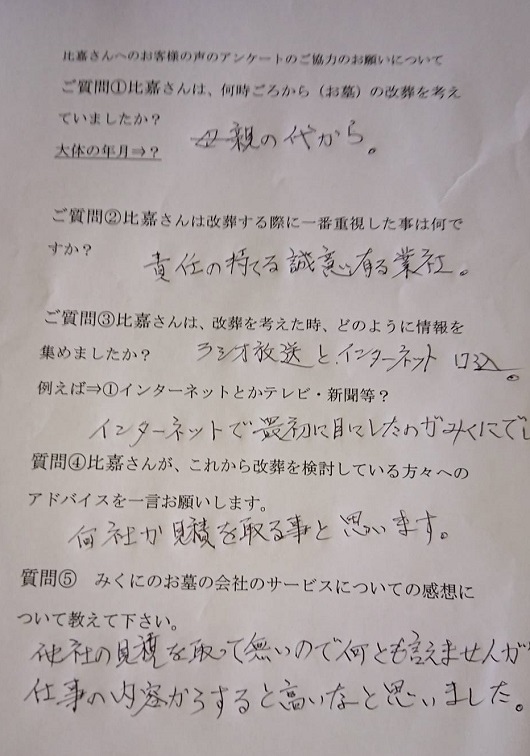 比嘉さんへのお客様の声のアンケートのご協力のお願いについて
ご質問①比嘉さんは、何時ごろから（お墓）の改葬を考え
ていましたか？
母親の代から。
大体の年月⇒？
ご質問②比嘉さんは改葬する際に一番重視した事は何で
すか？
責任の持てる誠意有る業社。
ご質問③比嘉さんは、改葬を考えた時、どのように情報を
集めましたか？ ラジオ放送とインターネット 口込。
例えば⇒①インターネットとかテレビ・新聞等？
インターネットで最初に目にしたのがみくにでし
質問④比嘉さんが、これから改葬を検討している方々への
アドバイスを一言お願いします。
何社か見積を取る事と思います。
質問⑤ みくにのお墓の会社のサービスについての感想に
ついて教えて下さい。
他社の見積を取って無いので何とも言えませんが
仕事の内容からすると高いなと思いました。